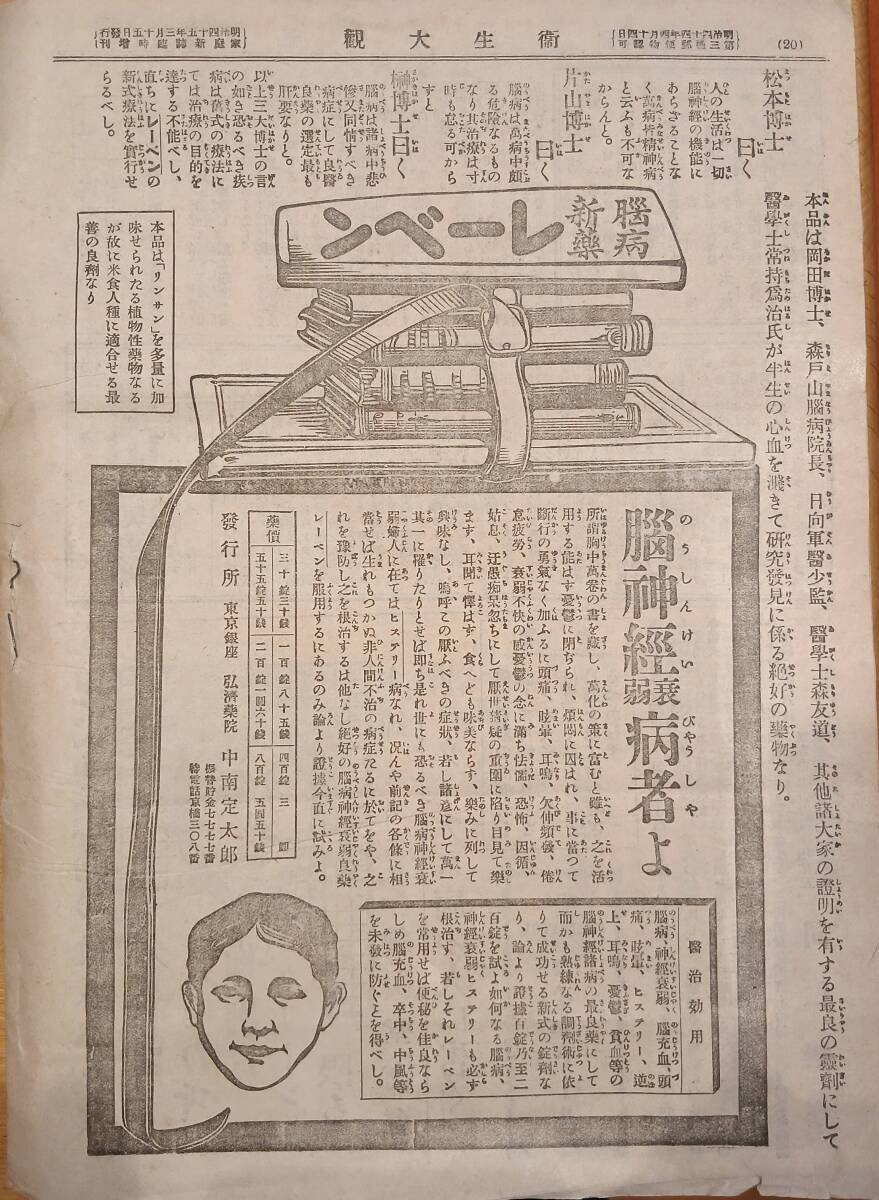 (20)
明治四十四年四月十四日
第三種郵便物認可
衛生大觀
明治四十五年三月十五日發行
家庭新誌臨時增刊
松本博士曰く
人の生活は一切
腦神經の機能に
あらざることな
く萬病皆精神病
と云ふも不可な
からんと。
片山博士曰く
腦病は萬病中頗
る危險なるもの
なり其治療は寸
時も怠る可から
ずと
榊博士曰く
腦病は諸病中悲
慘又同情すべき
病症にして良醫
良藥の選定最も
肝要なりと。
以上三大博士の言
の如き恐るべき疾
病は舊式の療法に
ては治療の目的を
達する不能べし、
直ちにレーベンの
新式療法を實行せ
らるべし。
本品は岡田博士、森戸山腦病院長、日向軍醫少監、醫學士森友道、其他諸大家の證明を有する最良の靈劑にして
醫學士常持爲治氏が半生の心血を濺きて研究發見に係る絶好の藥物なり。
腦病新藥
レーベン
本品は「リンサン」を多量に加
味せられたる植物性藥物なる
が故に米食人種に適合せる最
善の良劑なり
腦神經衰弱病者よ
所謂胸中萬卷の書を藏し、萬化の策に富むと雖も、之を活
用する能はず憂鬱に閉ぢられ、煩悶に囚はれ、事に當つて
斷行の勇氣なく加ふるに頭痛、眩暈、耳鳴、欠伸頻發、倦
怠疲勞、衰弱不快の感憂鬱の念に滿ち怯懦、恐怖、因循、
姑息、迂愚痴呆忽ちにして厭世猜疑の重圍に陷り目見て樂
まず、耳聞て懌はず、食へども味美ならす、樂みに列して
興味なし、嗚呼この厭ふべきの症狀、若し諸邉にして萬一
其一に罹りたりとせば即ち是れ世にも恐るべき腦病神經衰
弱婦人に在てはヒステリー病なれ、况んや前記の各條に相
當せば生れもつかぬ非人間不治の病症たるに於てをや、之
れを豫防し之を根治するは他なし絶好の腦病神經衰弱良藥
レーベンを服用するにあるのみ論より證據今直に試みよ。
藥價
三十錠三十錢
五十五錠五十錢
一百錠八十五錢
二百錠一圓六十錢
四百錠三圓
八百錠五圓五十錢
發行所 東京銀座 弘濟藥院 中南定太郎
振替貯金七七七七番
特電話京橋三〇八番
醫治効用
腦病、神經衰弱、腦充血、頭
痛、眩暈、ヒステリー、逆
上、耳鳴、憂鬱、貧血等の
腦神經諸病の最良藥にして
而かも熟練なる調劑術に依
りて成功せる新式の錠劑な
り、論より證據百錠乃至二
百錠を試よ如何なる腦病、
神經衰弱ヒステリーも必ず
根治す、若しそれレーベン
を常用せば便秘を佳良なら
しめ腦充血、卒中、中風等
を未發に防ぐことを得べし。